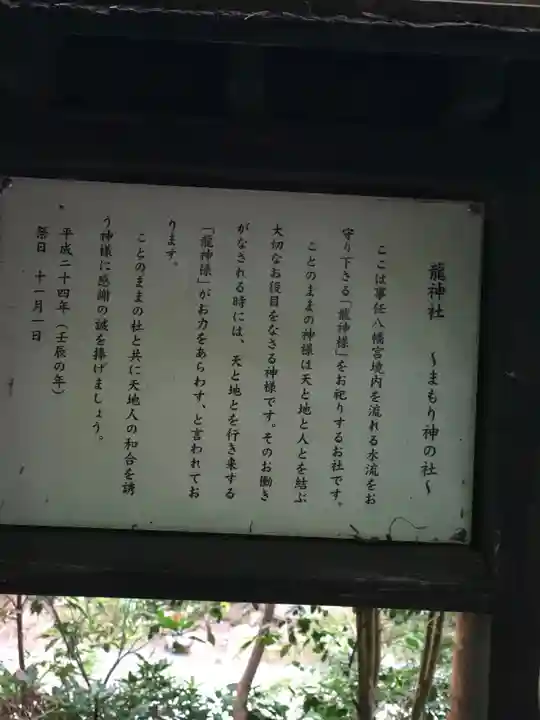 龍神社　～まもり神の社～
ここは事任八幡宮境内を流れる水流をお
守り下さる「龍神様」をお祀りするお社です。
ことのままの神様は天と地と人とを結ぶ
大切なお役目をなさる神様です。そのお働き
がなされる時には、天と地とを行き来する
「龍神様」がお力をあらわす、と言われてお
ります。
ことのままの社と共に天地人の和合を誘
う神様に感謝の誠を捧げましょう。
平成二十四年（壬辰の年）
祭日　十一月一日